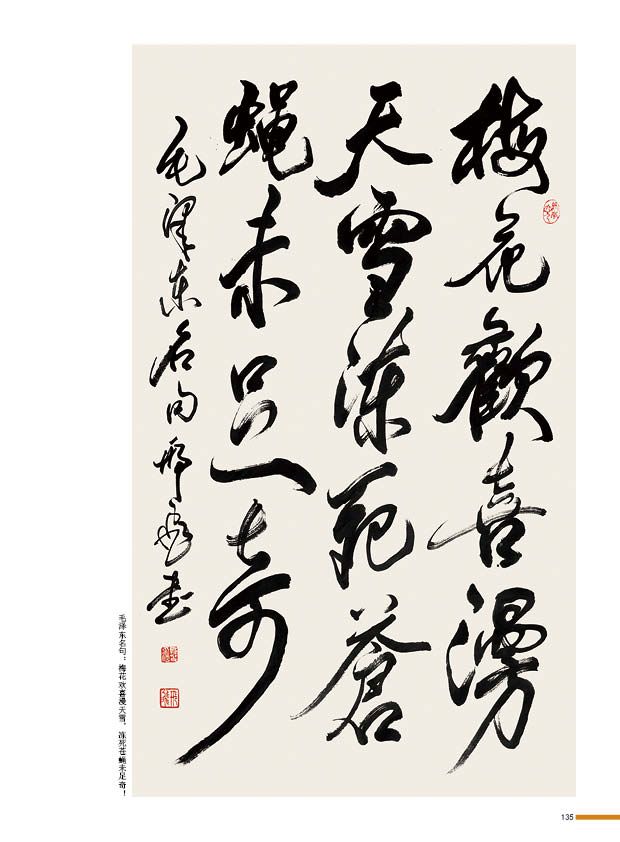 梅花歡喜漫
天雪凍死蒼
蠅未足奇
毛澤東名句 書
毛泽东名句：梅花欢喜漫天雪，冻死苍蝇未足奇！
135